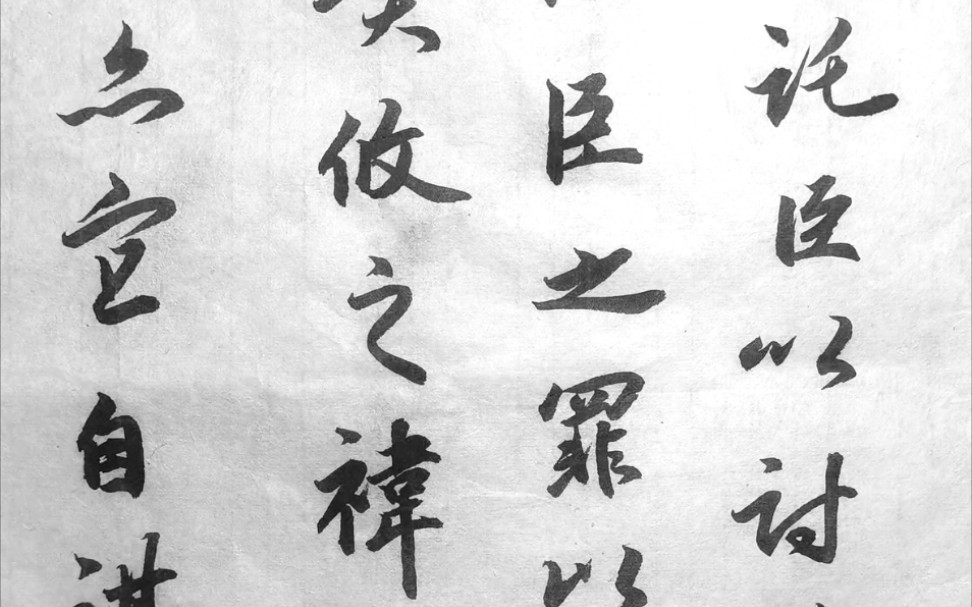 託臣以討
臣之罪以
攸之禕
亦宜自謀